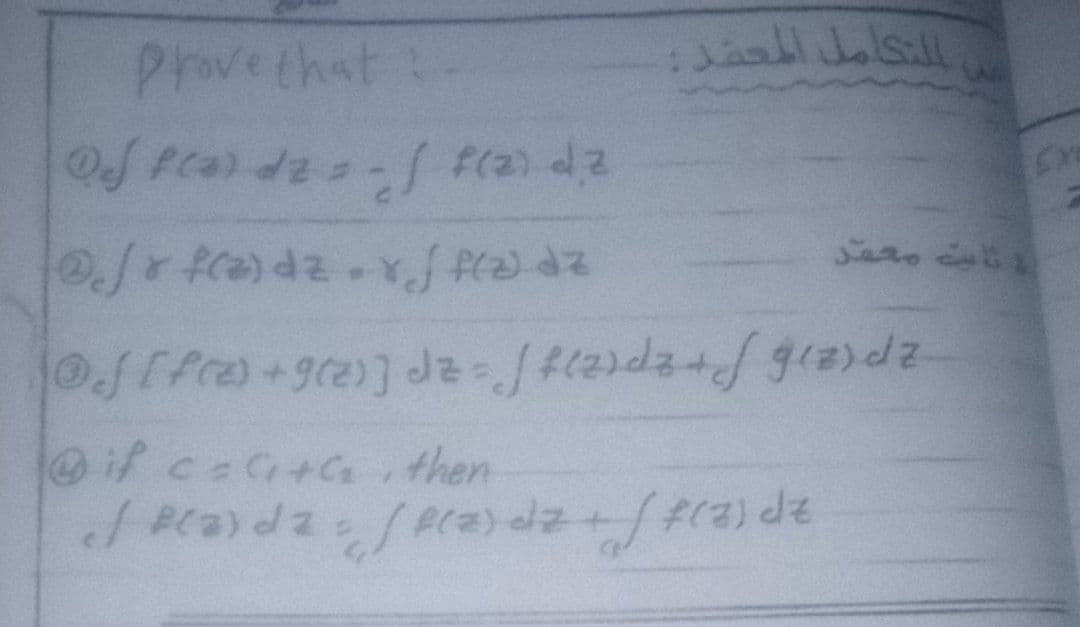 التكامل المعقد :
Prove that :-
① c∫ f(z) dz = - c∫ f(z) dz
② c∫ γ f(z) dz = γ c∫ f(z) dz ثابت معقد
③ c∫ [f(z) + g(z)] dz = c∫ f(z) dz + c∫ g(z) dz
④ if c = c₁ + c₂ , then
c∫ f(z) dz = c₁∫ f(z) dz + c₂∫ f(z) dz